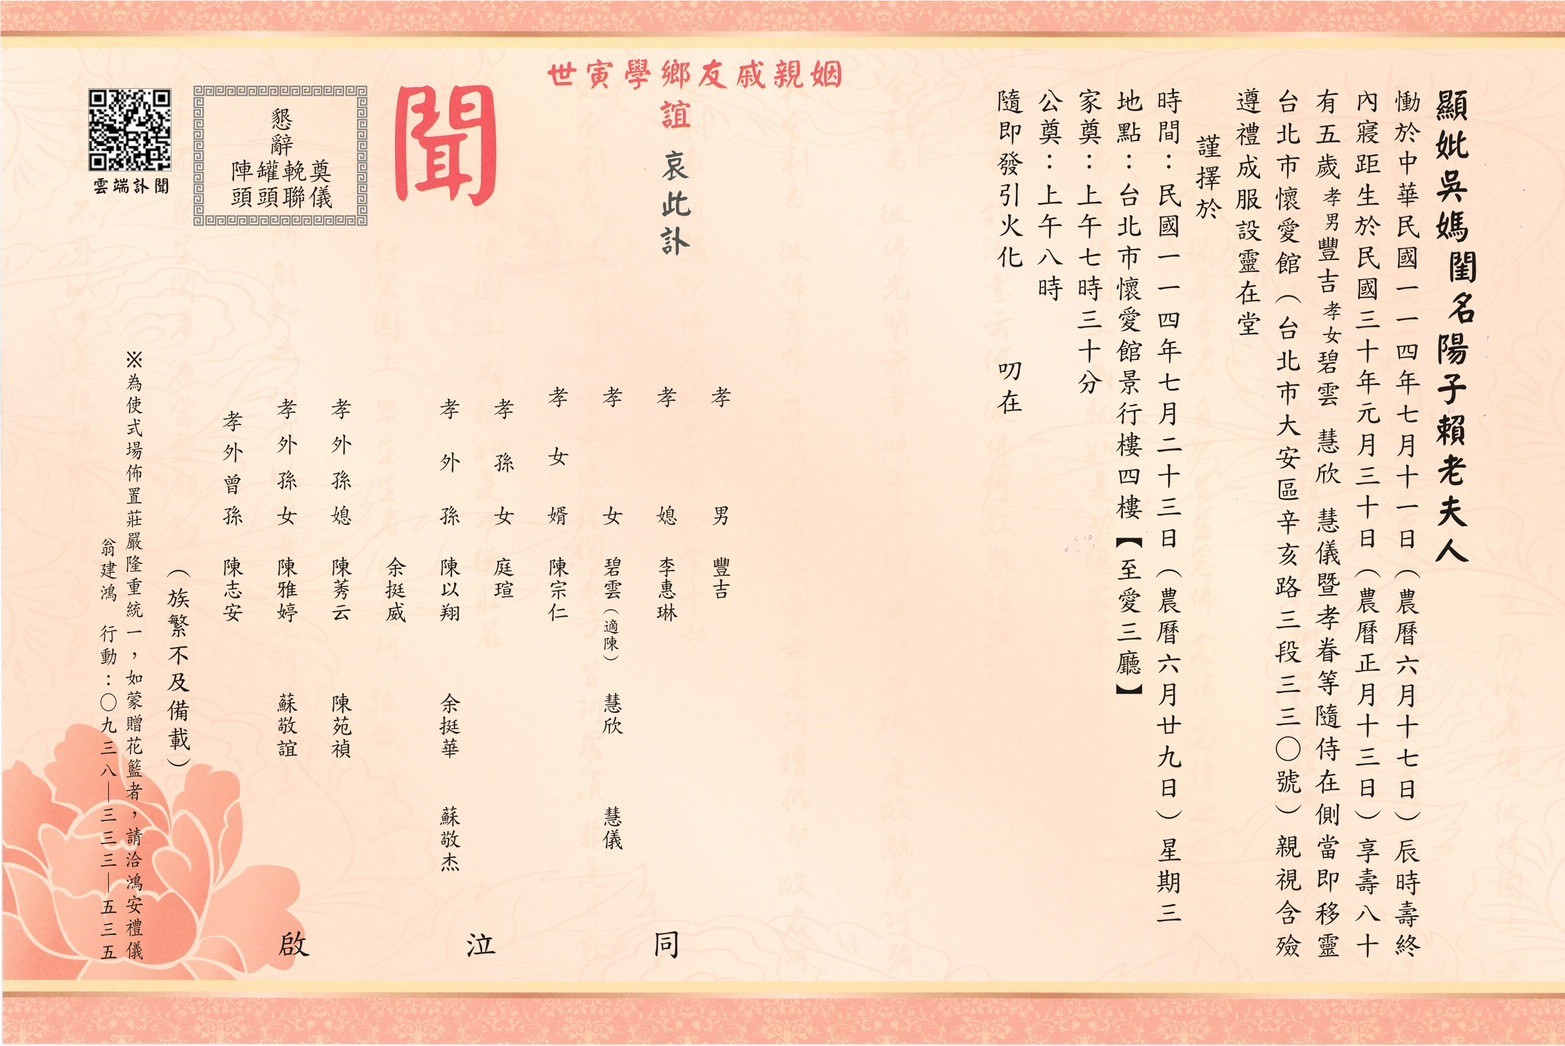 顯妣吳媽閨名陽子賴老夫人
慟於中華民國一一四年七月十一日（農曆六月十七日）辰時壽終
內寢距生於民國三十年元月三十日（農曆正月十三日）享壽八十
有五歲孝男豐吉孝女碧雲 慧欣 慧儀暨孝眷等隨侍在側當即移靈
台北市懷愛館（台北市大安區辛亥路三段三三〇號）親視含殮
遵禮成服設靈在堂
謹擇於
時間：民國一一四年七月二十三日（農曆六月廿九日）星期三
地點：台北市懷愛館景行樓四樓【至愛三廳】
家奠：上午七時三十分
公奠：上午八時
隨即發引火化 叨在
姻親戚友鄉學寅世
誼 哀此訃
聞
孝男 豐吉
孝媳 李惠琳
孝女 碧雲（適陳） 慧欣 慧儀
孝女婿 陳宗仁
孝孫女 庭瑄
孝外孫 陳以翔 余挺華 蘇敬杰
余挺威
孝外孫媳 陳莠云 陳苑禎
孝外孫女 陳雅婷 蘇敬誼
孝外曾孫 陳志安
同泣啟
（族繁不及備載）
※為使式場佈置莊嚴隆重統一，如蒙贈花籃者，請洽鴻安禮儀
翁建鴻 行動：〇九三八—三三三—五三五
懇辭
奠儀
輓聯
罐頭
陣頭
雲端訃聞